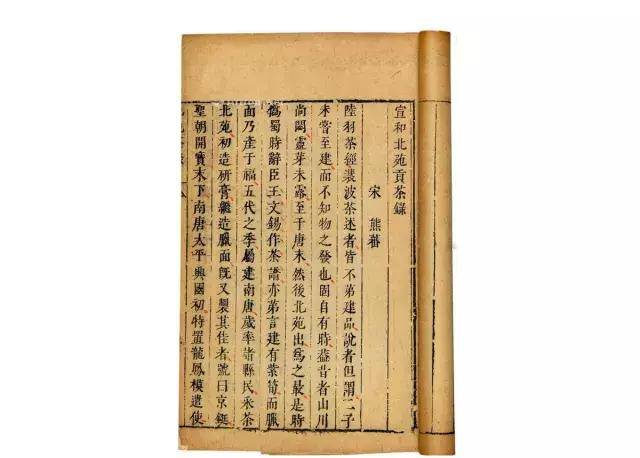 宣和北苑貢茶錄
宋 熊蕃
陸羽茶經裴汶茶述者皆不第建品說者但謂二子
未嘗至建而不知物之發也固自有時蓋昔者山川
尚閟靈芽未露至于唐末然後北苑出爲之最是時
僞蜀時辭臣王文錫作茶譜亦第言建有紫筍而臘
面乃産于福五代之季屬建南唐歲率諸縣民采茶
北苑初造研膏繼造臘面既又製其佳者號曰京鋌
聖朝開寶末下南唐太平興國初特置龍鳳模遣使